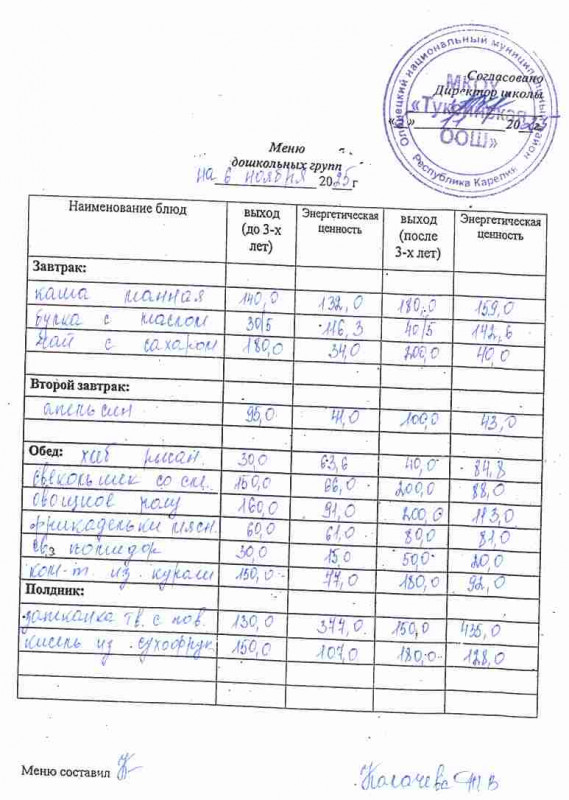 Согласовано
Директор школы
Олонецкий национальный муниципальный район
МКОУ
«Туксинская
ООШ»
Республика Карелия
Меню
дошкольных групп
на 6 ноября 2025г
Наименование блюд выход (до 3-х лет) Энергетическая ценность выход (после 3-х лет) Энергетическая ценность
Завтрак:
каша манная 140,0 132,0 180,0 159,0
булка с маслом 30/5 116,3 40/5 142,6
чай с сахаром 180,0 34,0 200,0 40,0
Второй завтрак:
апельсин 95,0 41,0 100,0 43,0
Обед: хлеб ржан. 30,0 63,6 40,0 84,8
свекольник со см. 150,0 66,0 200,0 88,0
овощное рагу 160,0 91,0 200,0 113,0
фрикадельки мясн. 60,0 61,0 80,0 81,0
св. помидор 30,0 15,0 50,0 20,0
ком-т из кураги 150,0 77,0 180,0 92,0
Полдник:
запеканка тв. с пов. 130,0 377,0 150,0 435,0
кисель из сухофрук. 150,0 107,0 180,0 128,0
Меню составил